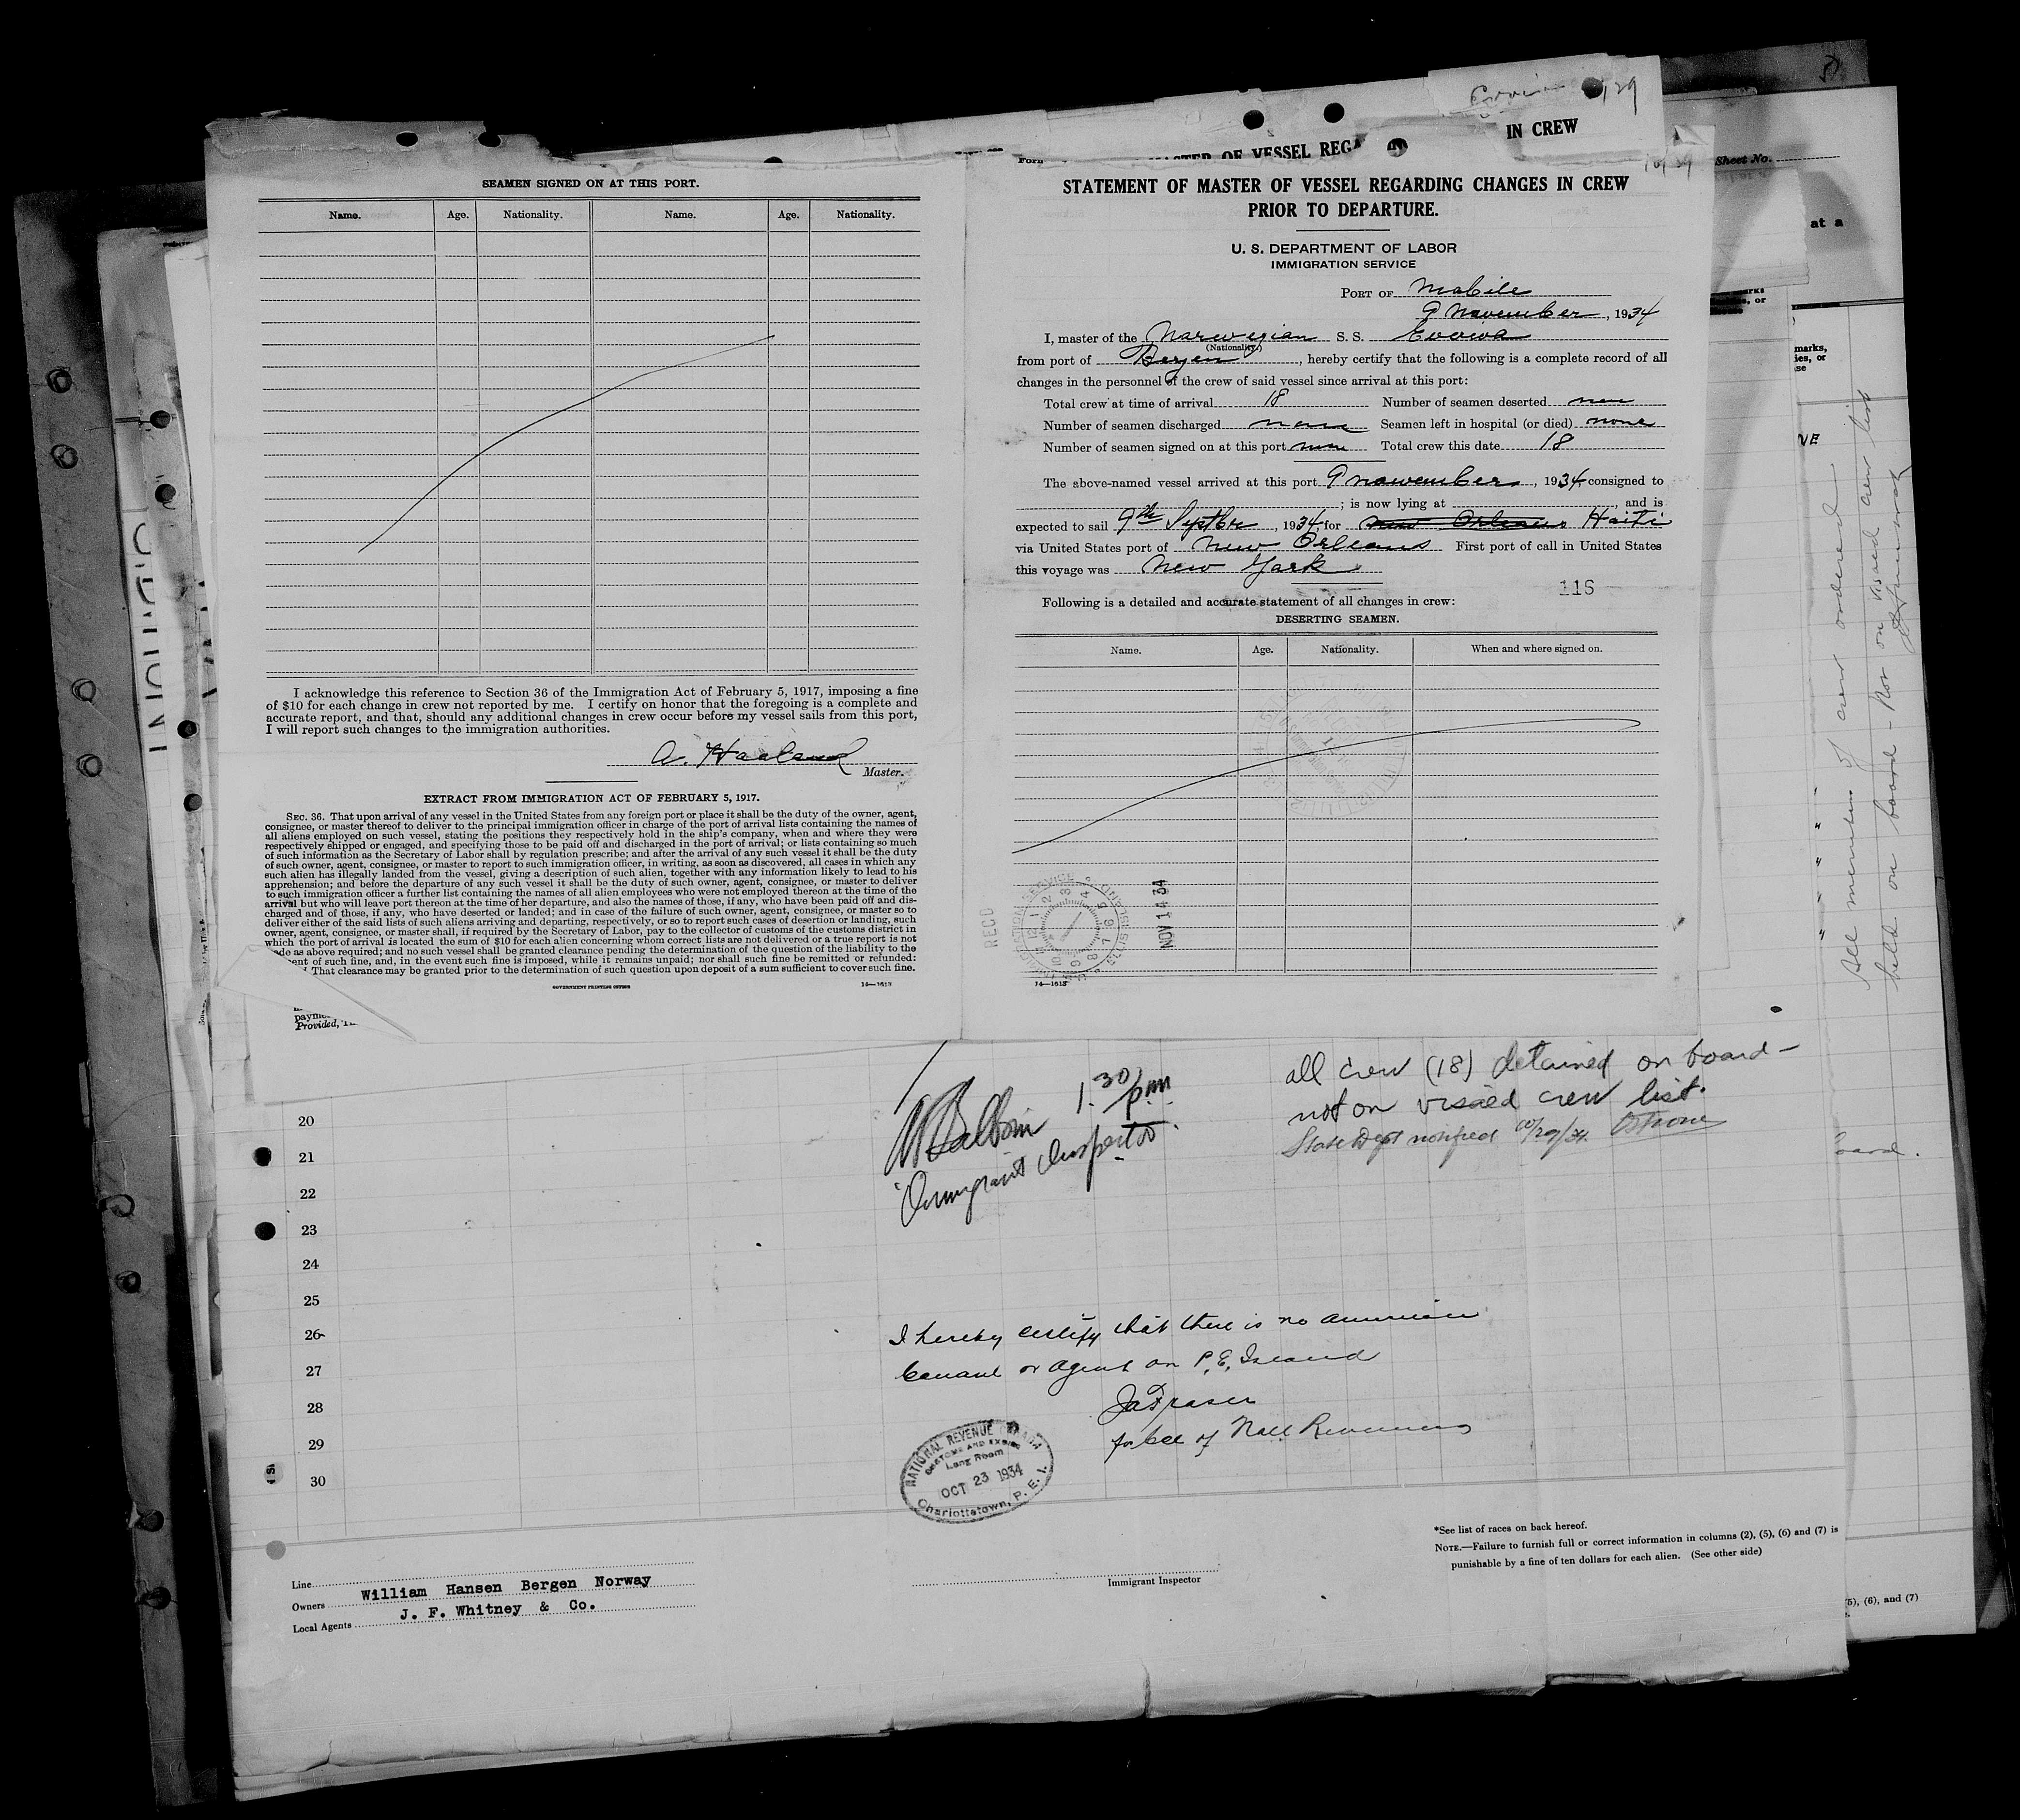 SEAMEN SIGNED ON AT THIS PORT.
Name. Age. Nationality. Name. Age. Nationality.
I acknowledge this reference to Section 36 of the Immigration Act of February 5, 1917, imposing a fine
of $10 for each change in crew not reported by me. I certify on honor that the foregoing is a complete and
accurate report, and that, should any additional changes in crew occur before my vessel sails from this port,
I will report such changes to the immigration authorities.
A. Haaland
Master.
EXTRACT FROM IMMIGRATION ACT OF FEBRUARY 5, 1917.
SEC. 36. That upon arrival of any vessel in the United States from any foreign port or place it shall be the duty of the owner, agent,
consignee, or master thereof to deliver to the principal immigration officer in charge of the port of arrival lists containing the names of
all aliens employed on such vessel, stating the positions they respectively hold in the ship's company, when and where they were
respectively shipped or engaged, and specifying those to be paid off and discharged in the port of arrival; or lists containing so much
of such information as the Secretary of Labor shall by regulation prescribe; and after the arrival of any such vessel it shall be the duty
of such owner, agent, consignee, or master to report to such immigration officer, in writing, as soon as discovered, all cases in which any
such alien has illegally landed from the vessel, giving a description of such alien, together with any information likely to lead to his
apprehension; and before the departure of any such vessel it shall be the duty of such owner, agent, consignee, or master to deliver
to such immigration officer a further list containing the names of all alien employees who were not employed thereon at the time of the
arrival but who will leave port thereon at the time of her departure, and also the names of those, if any, who have been paid off and dis-
charged and of those, if any, who have deserted or landed; and in case of the failure of such owner, agent, consignee, or master so to
deliver either of the said lists of such aliens arriving and departing, respectively, or so to report such cases of desertion or landing, such
owner, agent, consignee, or master shall, if required by the Secretary of Labor, pay to the collector of customs of the customs district in
which the port of arrival is located the sum of $10 for each alien concerning whom correct lists are not delivered or a true report is not
ade as above required; and no such vessel shall be granted clearance pending the determination of the question of the liability to the
ent of such fine, and, in the event such fine is imposed, while it remains unpaid; nor shall such fine be remitted or refunded:
That clearance may be granted prior to the determination of such question upon deposit of a sum sufficient to cover such fine.
GOVERNMENT PRINTING OFFICE 14—1613
payme
Provided,
129
IN CREW
Form
OF VESSEL REGA
STATEMENT OF MASTER OF VESSEL REGARDING CHANGES IN CREW
PRIOR TO DEPARTURE.
U. S. DEPARTMENT OF LABOR
IMMIGRATION SERVICE
PORT OF Mobile
9 November, 1934
I, master of the Norwegian S. S. Eovina
(Nationality.)
from port of Bergen, hereby certify that the following is a complete record of all
changes in the personnel of the crew of said vessel since arrival at this port:
Total crew at time of arrival 18 Number of seamen deserted non
Number of seamen discharged none Seamen left in hospital (or died) none
Number of seamen signed on at this port non Total crew this date 18
The above-named vessel arrived at this port 9 november, 1934, consigned to
; is now lying at , and is
expected to sail 9th Septbr, 1934, for New Orleans Haiti
via United States port of New Orleans First port of call in United States
this voyage was New York
116
Following is a detailed and accurate statement of all changes in crew:
DESERTING SEAMEN.
Name. Age. Nationality. When and where signed on.
RECD
NOV 14 34
14—1613
Sheet No.
at a
marks,
ies, or
se
NE
All members of crew ordered
held on board - Not on visaed crew list
oard.
5), (6), and (7)
1.30 p.m.
Immigrant Inspector
all crew (18) detained on board -
not on visaed crew list.
State Dept notified 10/29/34.
20
21
22
23
24
25
26
27
28
29
30
I hereby certify that there is no American
Consul or agent on P. E. Island
J A Fraser
for Col of Natl Revenue
NATIONAL REVENUE CANADA
CUSTOMS AND EXCISE
Long Room
OCT 23 1934
Charlottetown, P. E. I.
Line
Owners William Hansen Bergen Norway
Local Agents J. F. Whitney & Co.
Immigrant Inspector
*See list of races on back hereof.
NOTE.—Failure to furnish full or correct information in columns (2), (5), (6) and (7) is
punishable by a fine of ten dollars for each alien. (See other side)